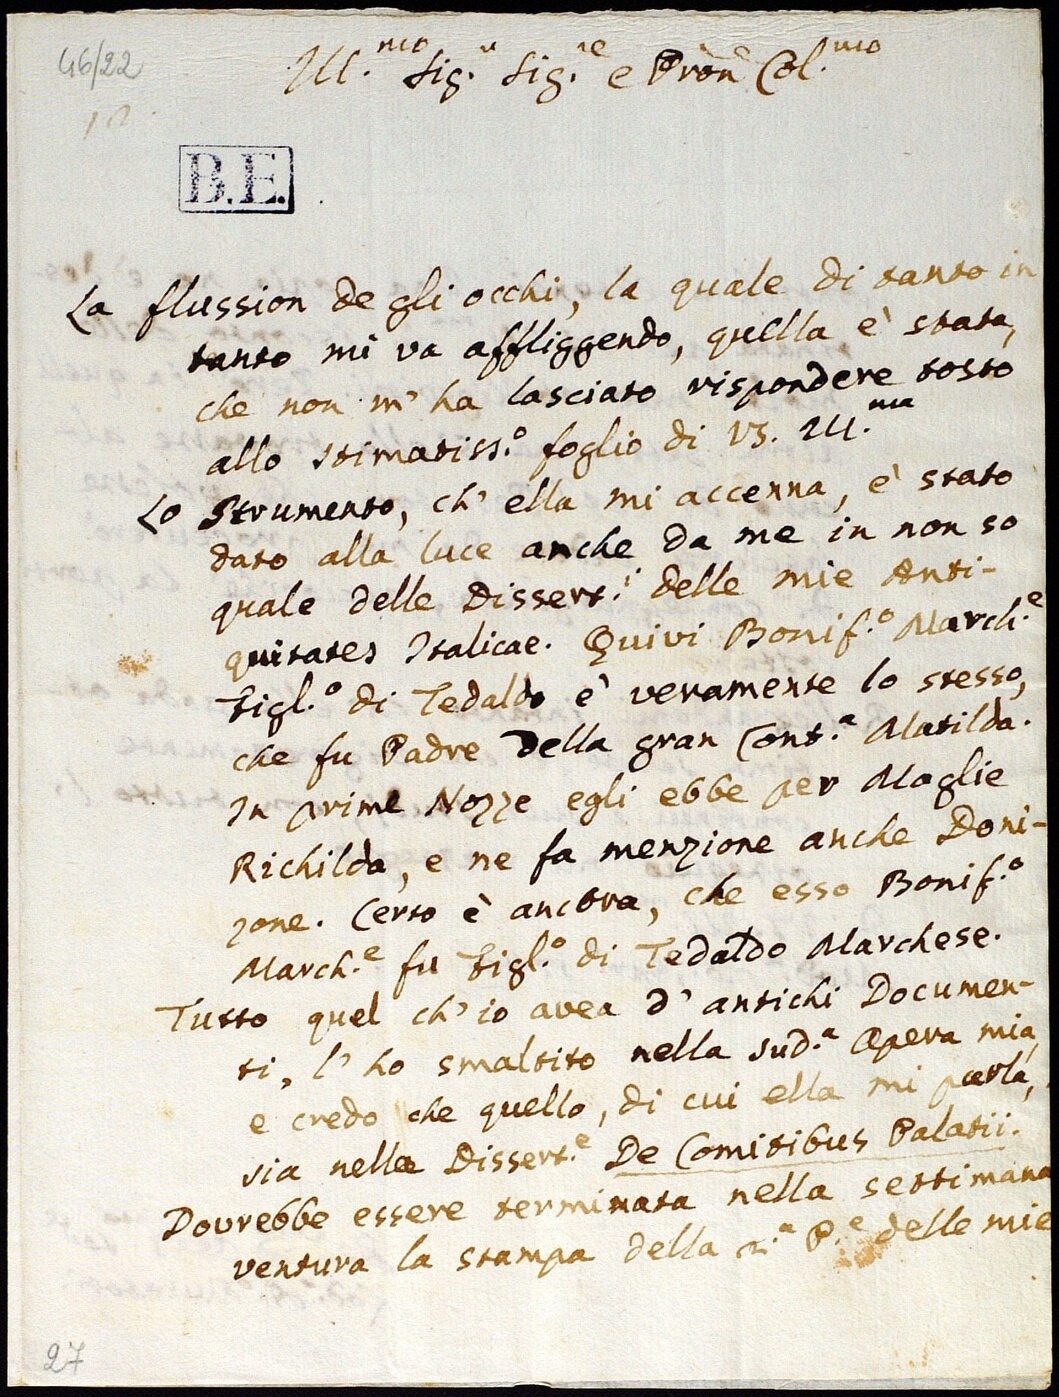 46/22
Ill.mo Sig.r Sig.re e Pron Col.mo
B.E.
La flussion degli occhi, la quale di tanto in
tanto mi va affliggendo, quella è stata,
che non m'ha lasciato rispondere tosto
allo stimatiss.o foglio di VS. Ill.ma
Lo Strumento, ch'ella mi accenna, è stato
dato alla luce anche da me in non so
quale delle Dissert.i delle mie Anti-
quitates Italicae. Quivi Bonif.o March.e
Figl.o di Tedaldo è veramente lo stesso,
che fu Padre della gran Cont.a Matilda.
In prime Nozze egli ebbe per Moglie
Richilda, e ne fa menzione anche Doni-
zone. Certo è ancora, che esso Bonif.o
March.e fu Figl.o di Tedaldo Marchese.
Tutto quel ch'io avea d'antichi Documen-
ti, l'ho smaltito nella sud.a Opera mia,
e credo che quello, di cui ella mi parla,
sia nella Dissert.e De Comitibus Palatii.
Dovrebbe essere terminata nella settimana
ventura la stampa della 2.a P.e delle mie
27